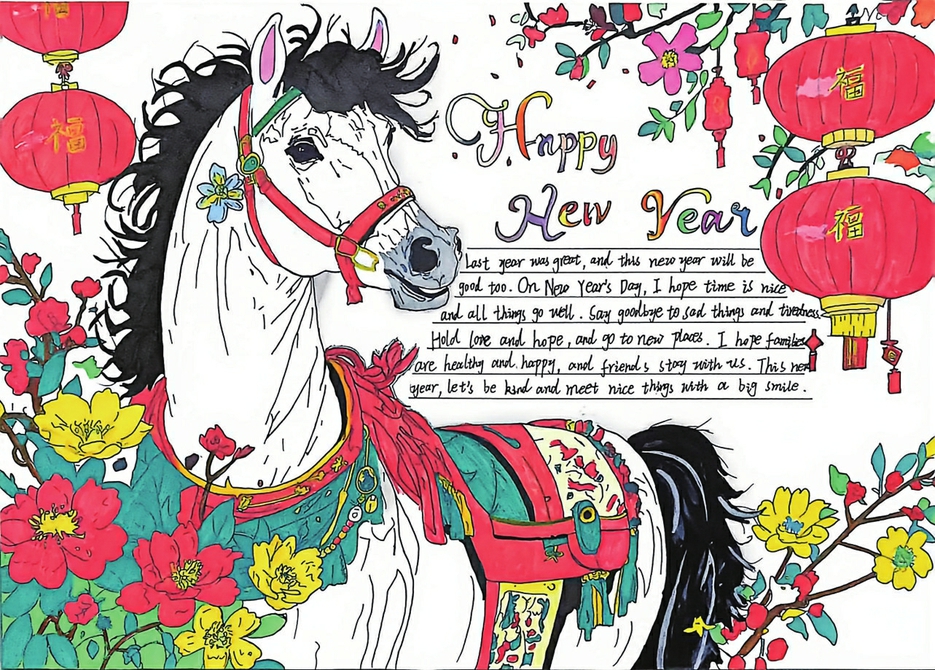 福
福
福
Happy
New Year
Last year was great, and this new year will be
good too. On New Year's Day, I hope time is nice
and all things go well. Say goodbye to sad things and tiredness.
Hold love and hope, and go to new places. I hope families
are healthy and happy, and friends stay with us. This new
year, let's be kind and meet nice things with a big smile.